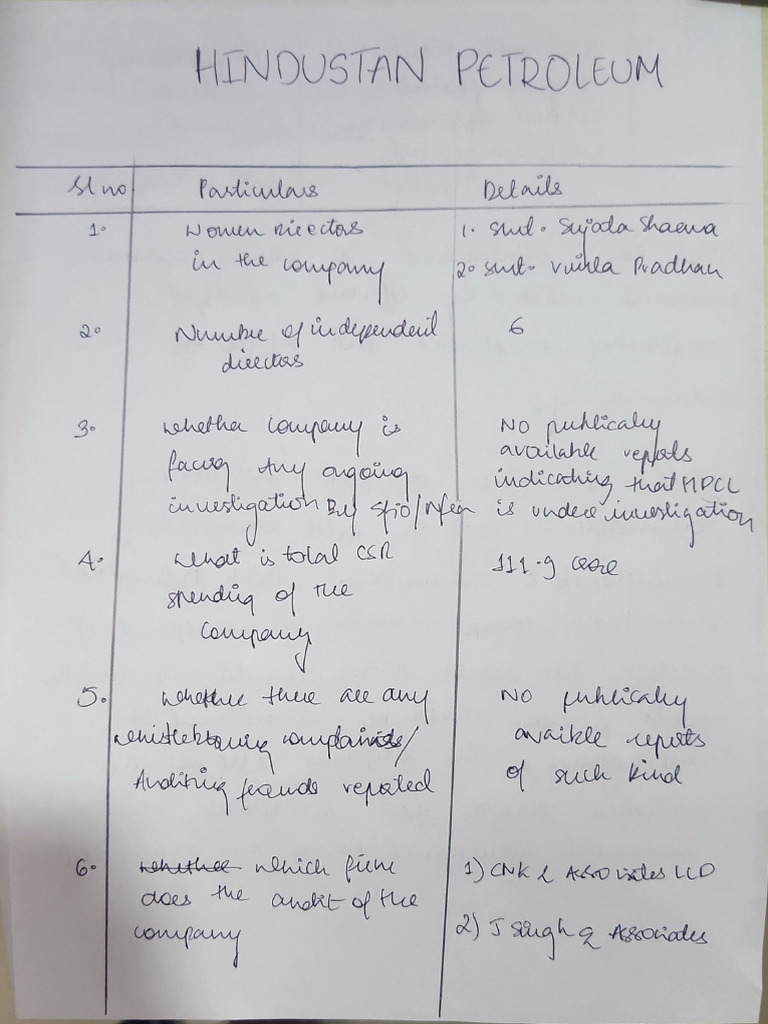 HINDUSTAN PETROLEUM
Sl no Particulars Details
1. Women Directors 1. Smt. Sujata Sharma
in the company 2. Smt. Vimla Pradhan
2. Number of independent 6
directors
3. whether company is No publically
facing any ongoing available reports
investigation By SFIO/ indicating that HPCL
is under investigation
4. What is total CSR 111.9 crore
spending of the
company
5. whether there are any No publically
whistleblowing complaints/ avaible reports
Auditing frauds reported of such kind
6. which firm 1) CNK & Associates
does the audit of the
company 2) J Singh & Associates